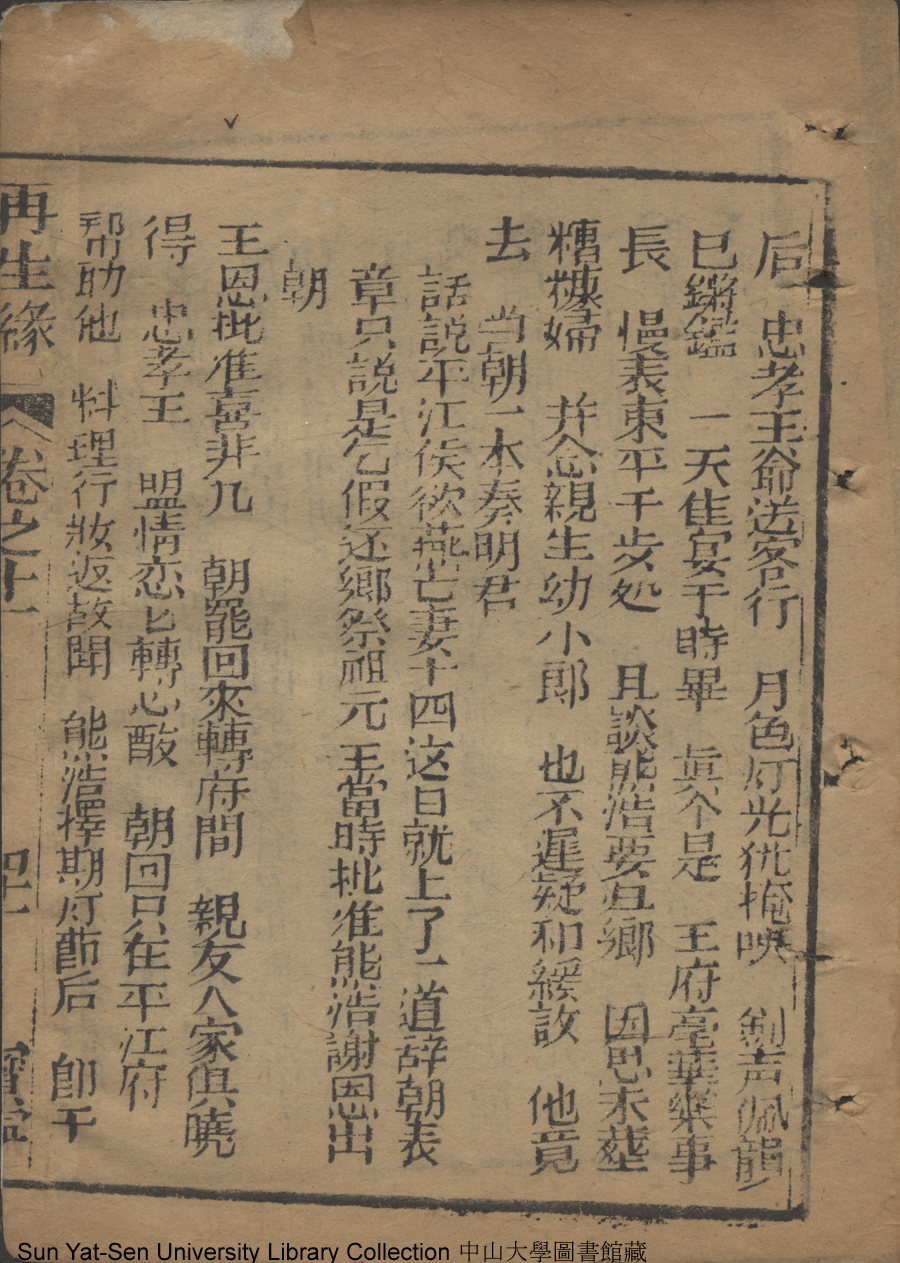 后　忠孝王爺送客行　月色灯光犹掩映　剑声佩韻
已鏘鏘　一天佳宴于時畢　真个是　王府亳華樂事
長　慢表東平千歩処　且談熊浩要旦鄉　因思未塟
糟糠婦　并念親生幼小郎　也不遲疑和緩敀　他竟
去　当朝一本奏明君
話説平江侯欲燕亡妻十四这日就上了一道辞朝表
章只説是乞假还鄉祭祖元王當時批准熊浩謝恩出
朝
王恩批准喜非凡　朝罷回來轉府間　親友人家俱曉
得　忠孝王　盟情恋匕轉心酸　朝回只在平江府
帮助他　料理行妝返故閞　熊浩擇期灯節后　即于
再生緣　卷之十一　四十一　寳寧
Sun Yat-Sen University Library Collection 中山大學圖書館藏